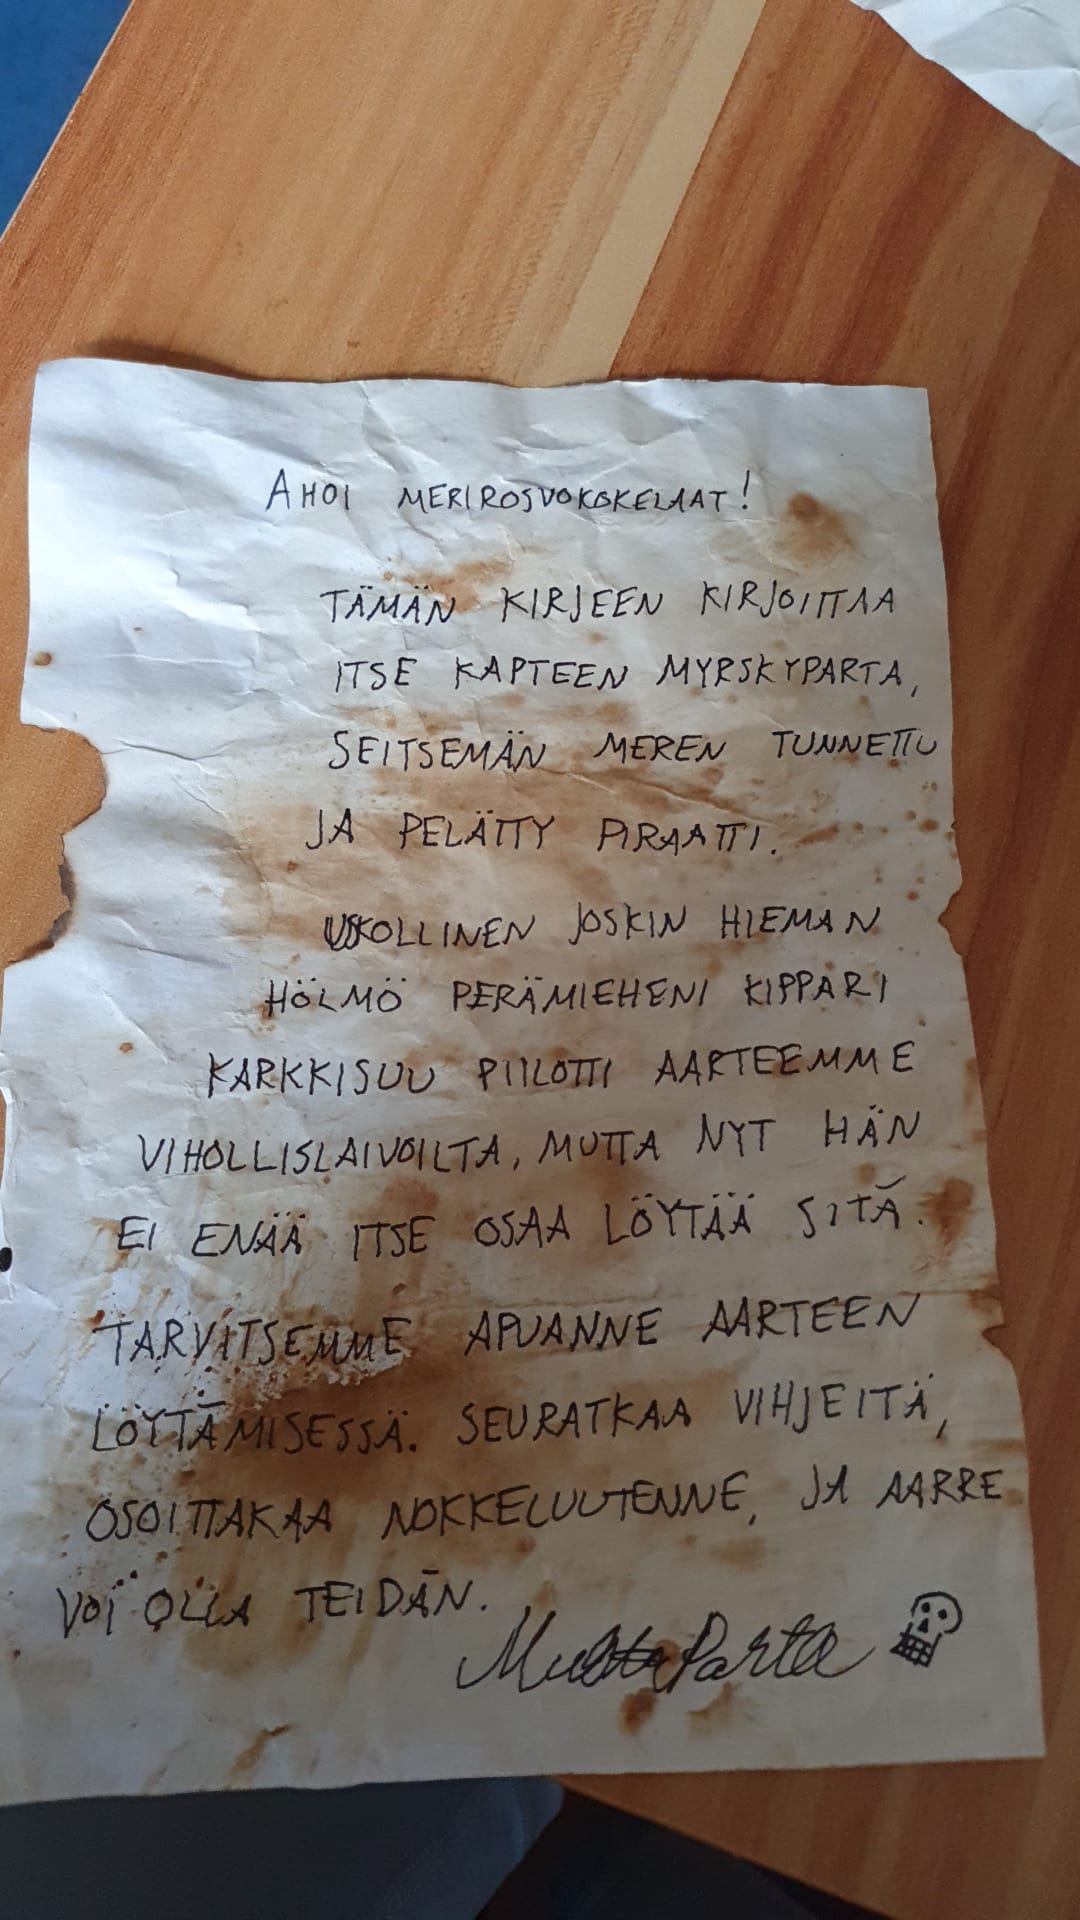 AHOI MERIROSVOKOKELAAT!
TÄMÄN KIRJEEN KIRJOITTAA
ITSE KAPTEEN MYRSKYPARTA,
SEITSEMÄN MEREN TUNNETTU
JA PELÄTTY PIRAATTI.
USKOLLINEN JOSKIN HIEMAN
HÖLMÖ PERÄMIEHENI KIPPARI
KARKKISUU PIILOTTI AARTEEMME
VIHOLLISLAIVOILTA, MUTTA NYT HÄN
EI ENÄÄ ITSE OSAA LÖYTÄÄ SITÄ.
TARVITSEMME APUANNE AARTEEN
LÖYTÄMISESSÄ. SEURATKAA VIHJEITÄ,
OSOITTAKAA NOKKELUUTENNE, JA AARRE
VOI OLLA TEIDÄN.
MustaParta